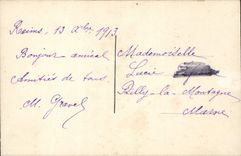 Reims, 13 Xbre 1913
Bonjour amical
Amitiés de tous.
M. Gravel
Mademoiselle
Lucie
Rilly-la-Montagne
Marne